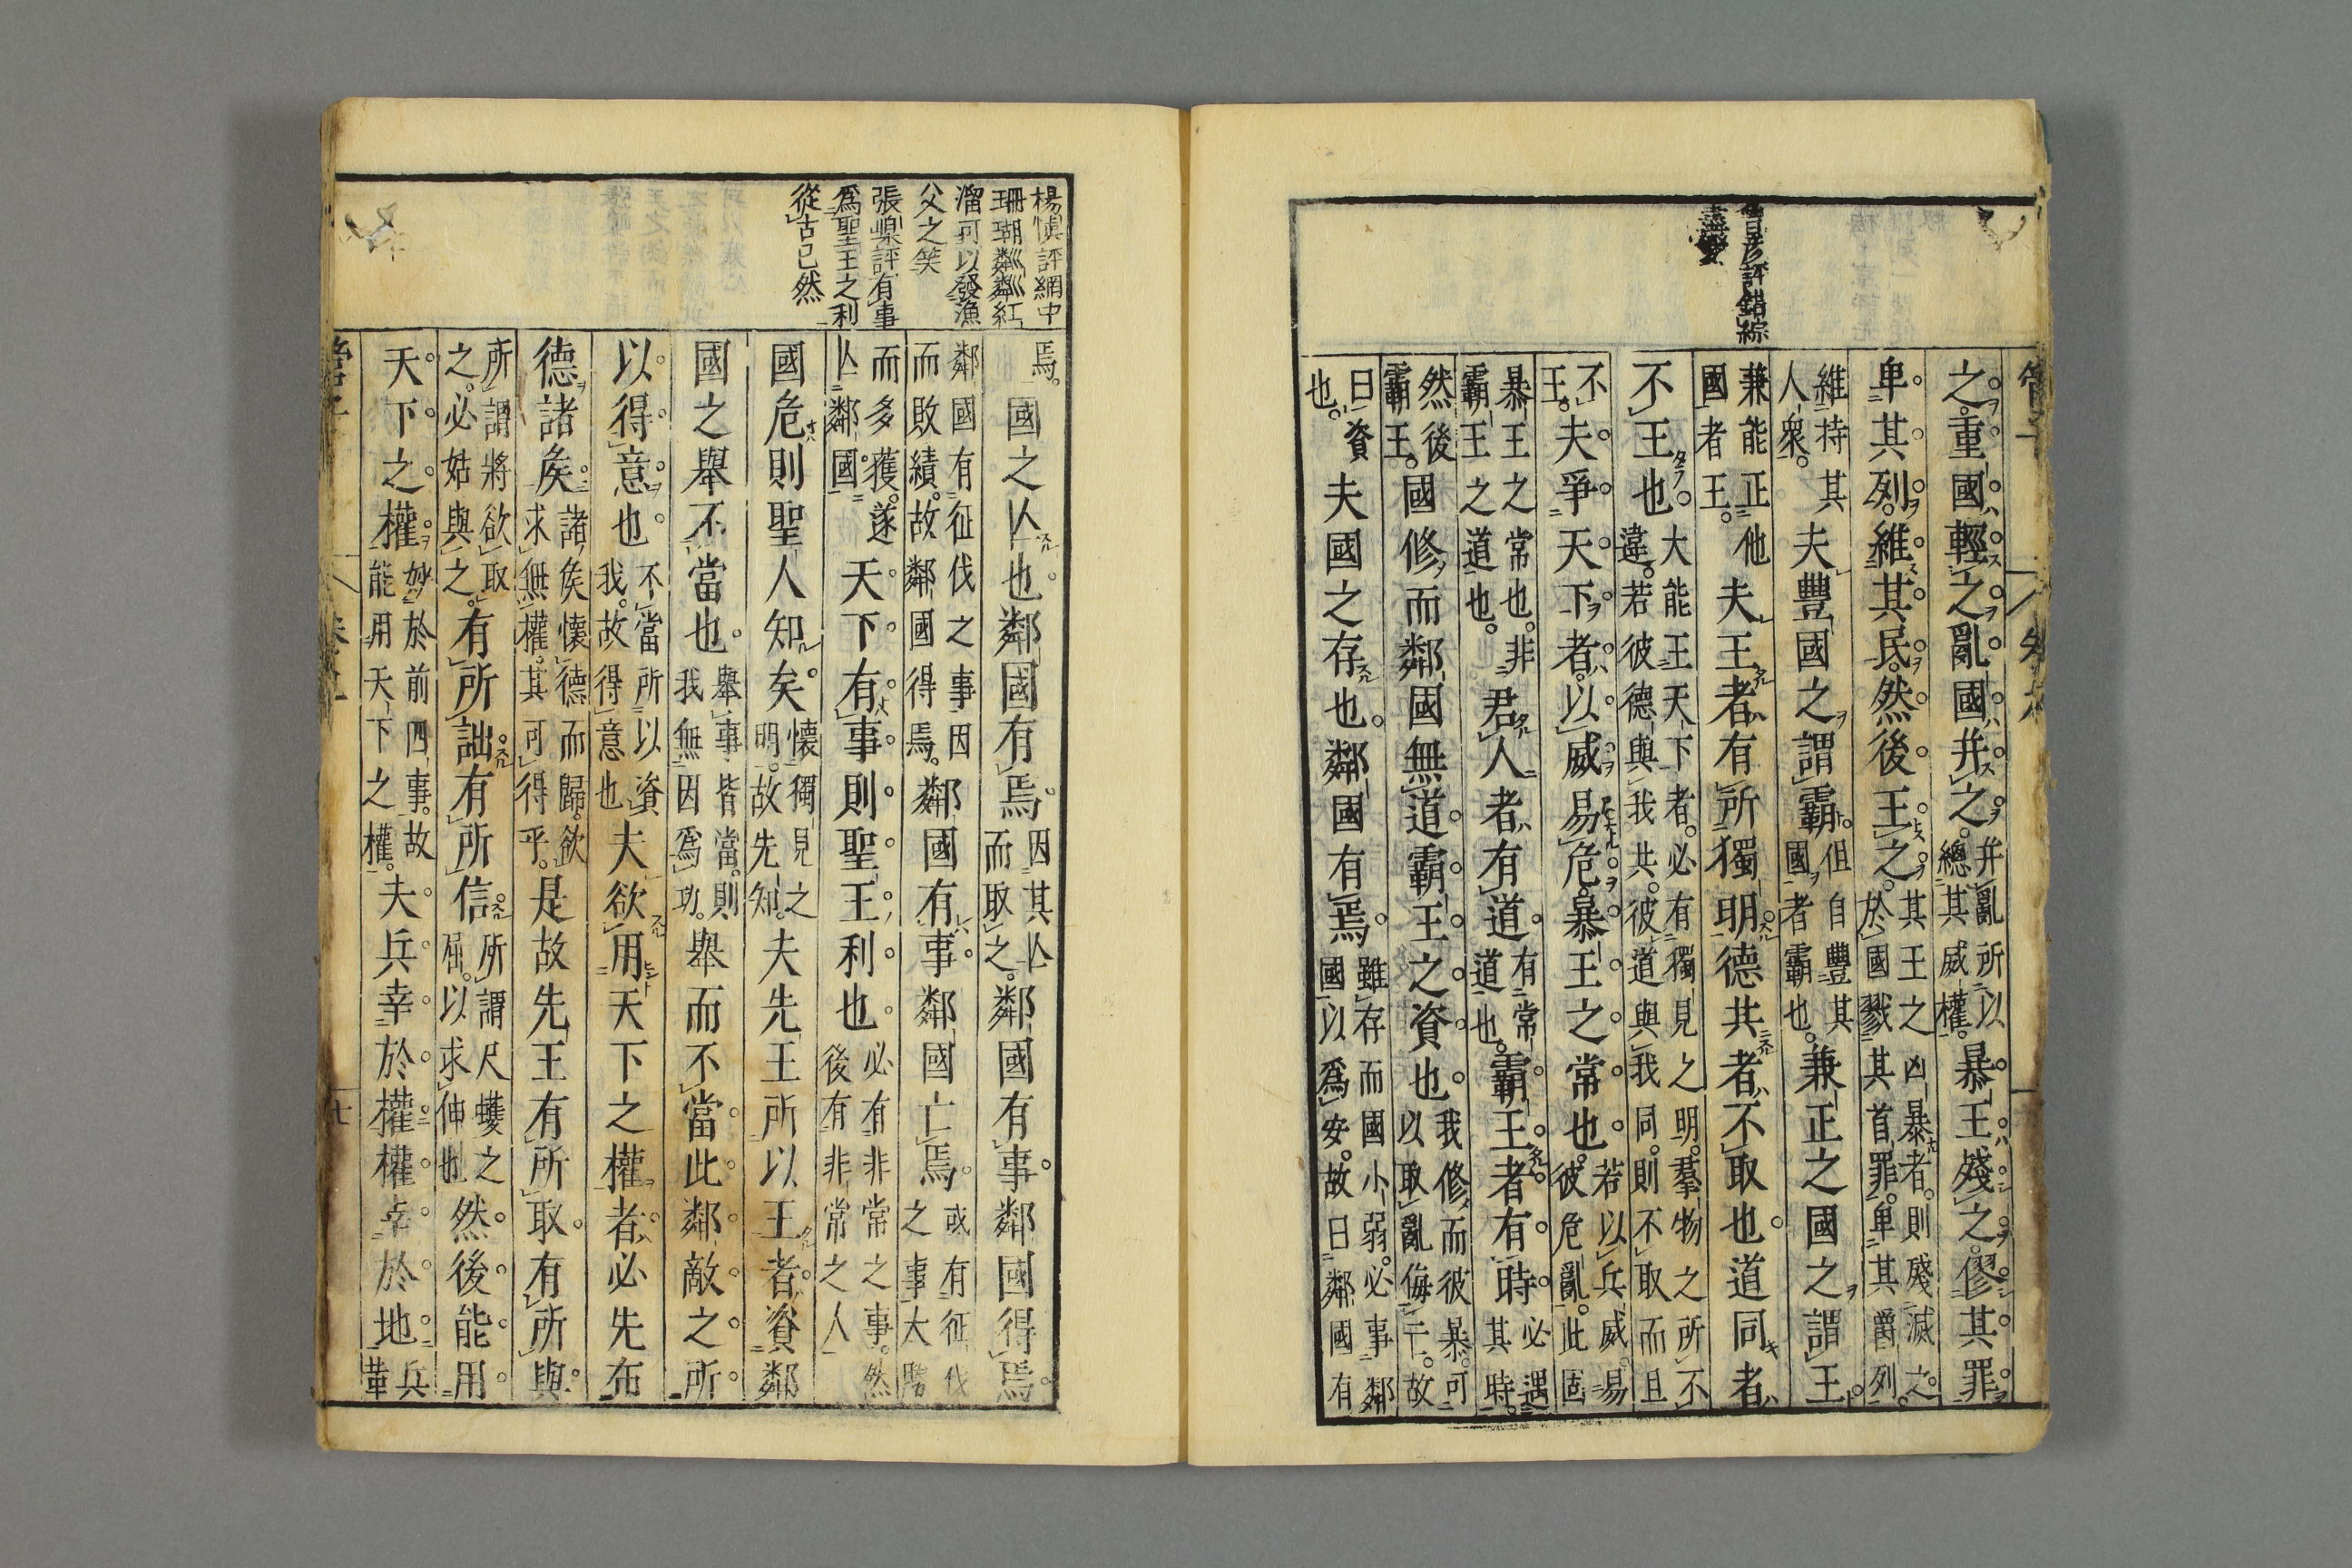 管子
曾彦評錯綜
之。重國輕之。亂國并之。并亂所以總其威權。暴王殘之。僇其罪
卑其列。維其民。然後王之。其王之凶暴者。則殘滅之。於國戮其首罪。卑其爵列。
維持其人衆。夫豐國之謂霸。但自豐其國者霸也。兼正之國之謂王。
兼能正他國者王。夫王者有所獨明德共者不取也。道同者
不王也。大能王天下者。必有獨見之明。羣物之所不違。若彼德與我共。彼道與我同。則不取而且
不王。夫爭天下者。以威易危。暴王之常也。若以兵威。易彼危亂。此固
暴王之常也。非霸王之道也。君人者有道。有常道也。霸王者有時。必遇其時。
然後霸王。國修而鄰國無道。霸王之資也。我修而彼暴。可以取亂侮亡。故
曰資也。夫國之存也。鄰國有焉。雖存而國小弱。必事鄰國以爲安。故曰鄰國有
楊愼評網中
珊瑚粼粼紅
溜可以發漁
父之笑
張嵲評有事
爲聖王之利
從古已然
焉。國之亾也。鄰國有焉。因其亾而取之。鄰國有事。鄰國得焉。
鄰國有征伐之事。因而敗績。故鄰國得焉。鄰國有事。鄰國亡焉。或有征伐之事。大勝
而多獲。遂亾鄰國。天下有事。則聖王利也。必有非常之事。然後有非常之人
國危則聖人知矣。懷獨見之明。故先知。夫先王所以王者。資鄰
國之舉不當也。舉事皆當。則我無因爲功。舉而不當。此鄰敵之所
以得意也。不當所以資我。故得意也夫欲用天下之權者。必先布
德諸矦。諸矦懷德而歸。欲求無權。其可得乎。是故先王有所取。有所與。
所謂將欲取之。必姑與之。有所詘有所信。所謂尺蠖之屈。以求伸也然後能用
天下之權。妙於前四事。故能用天下之權。夫兵幸於權。權幸於地。兵革